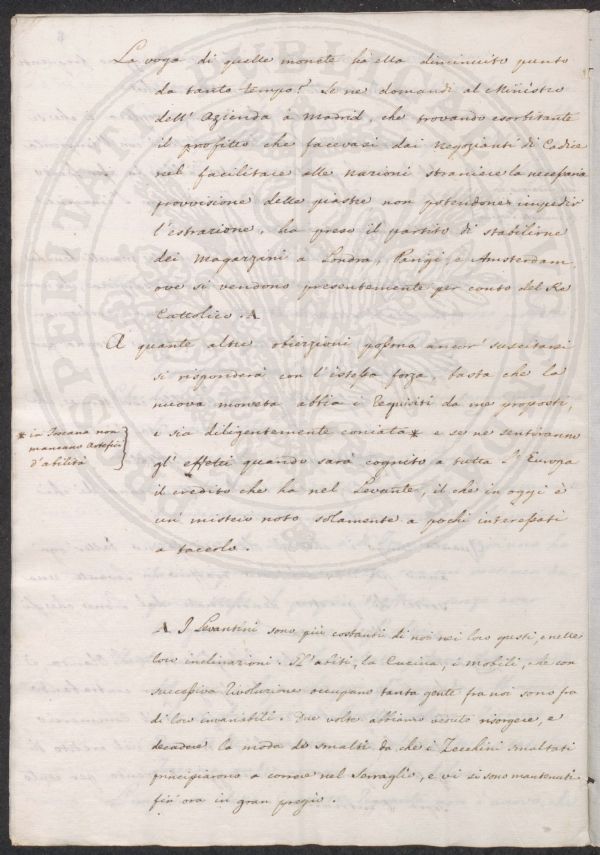 La voga di quelle monete ha ella diminuito punto
da tanto tempo? Se ne domandi al Ministro
dell' Azienda a Madrid, che trovando esorbitante
il profitto che facevasi dai Negozianti di Cadice
nel facilitare alle nazioni straniere la necessaria
provvisione delle piastre non potendone impedir
l'estrazione, ha preso il partito di stabilirne
dei Magazzini a Londra, Parigi, e Amsterdam,
ove si vendono presentemente per conto del Re
Cattolico. A
A quante altre obiezzioni possono ancor' suscitarsi
si risponderà con l'istessa forza, basta che la
nuova moneta abbia i requisiti da me proposti,
e sia diligentemente coniata* e se ne sentiranno
gl' effetti quando sarà cognito a tutta l'Europa
il credito che ha nel Levante, il che in oggi è
un misterio noto solamente a pochi interessati
a tacerlo.
* in Toscana non
mancano Artefici
d'abilità
A I Levantini sono più costanti di noi nei loro gusti, e nelle
loro inclinazioni. Gl' abiti, la Cucina, i mobili, che con
successiva rivoluzione occupano tanta gente fra noi sono fra
di loro invariabili. Due volte abbiamo veduto risorgere, e
decadere la moda de smalti da che i Zecchini smaltati
principiarono a correre nel Serraglio, e vi si sono mantenuti
fin' ora in gran pregio.
SPERITATI PUBLICAE